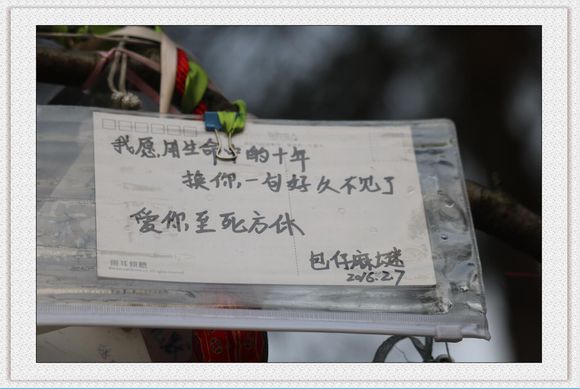 我愿,用生命中的十年
换你,一句好久不见了
愛你,至死方休
包仔麻
2016.2.7